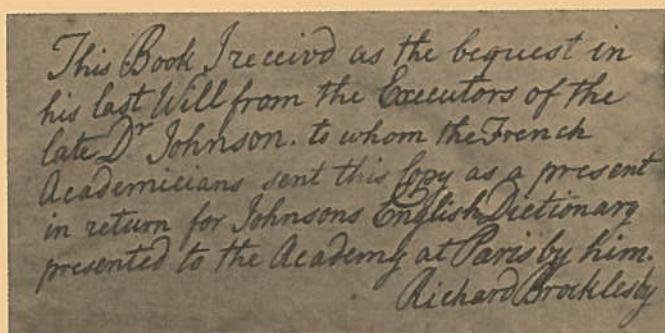 This Book I receivd as the bequest in
his last Will from the Executors of the
late Dr Johnson. to whom the French
Academicians sent this Copy as a present
in return for Johnsons English Dictionary
presented to the Academy at Paris by him.
Richard Brocklesby